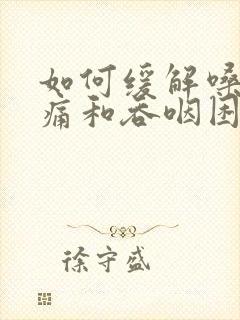 如何缓解嗓
痛和吞咽困
徐守盛